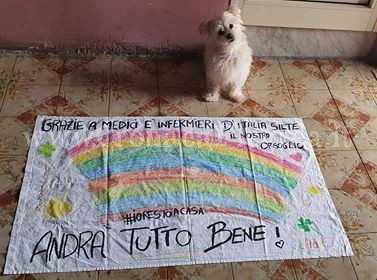 GRAZIE A MEDICI E' INFERMIERI D'ITALIA SIETE
IL NOSTRO
ORGOGLIO
#IORESTOACASA
ANDRA TUTTO BENE!